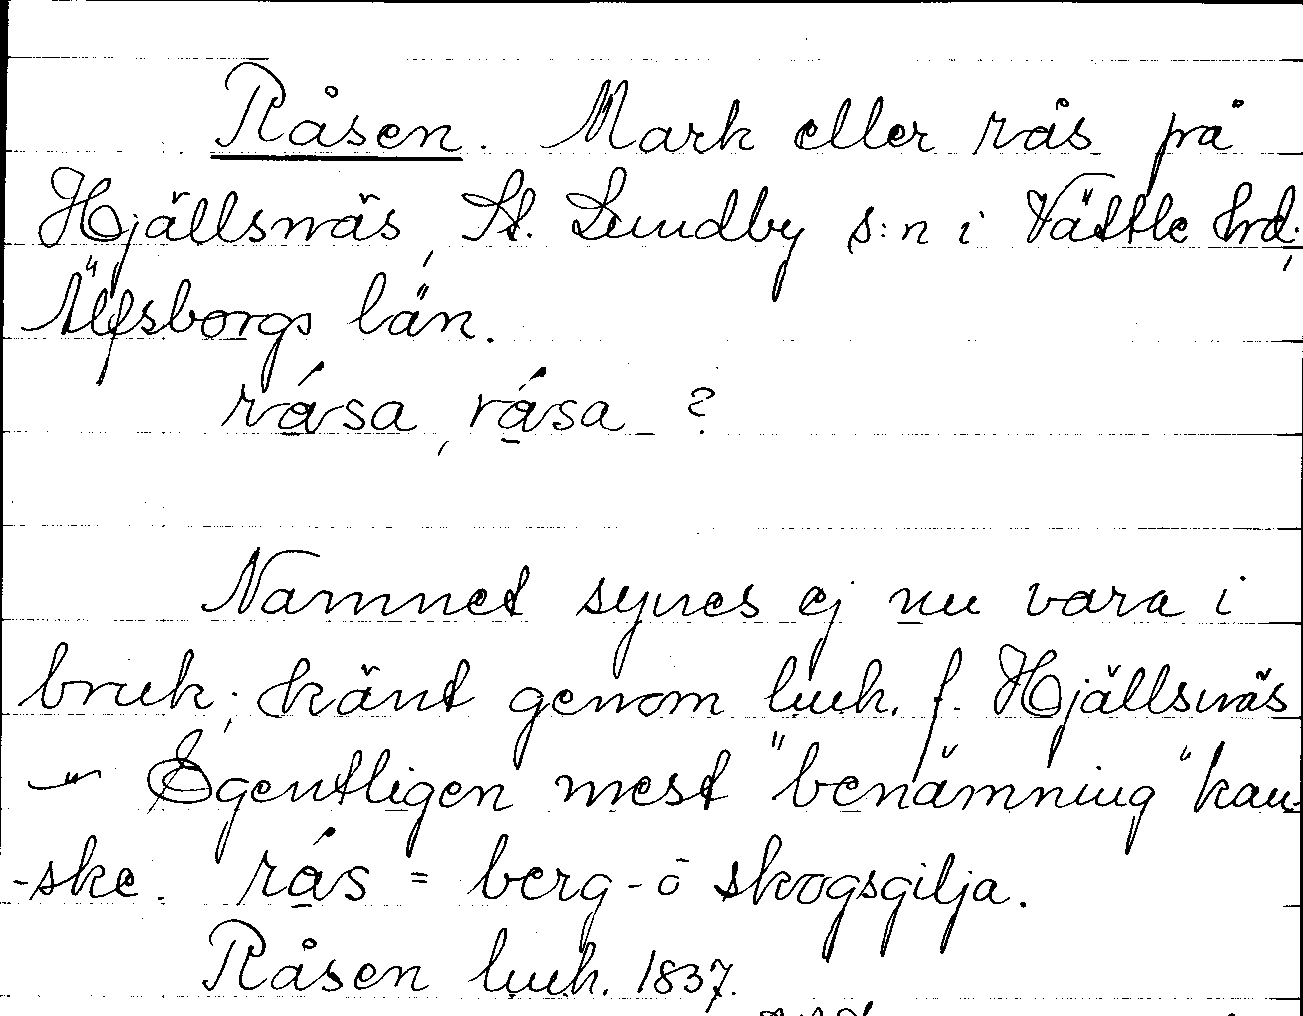 Råsen. Mark eller rås på
Hjällsnäs, St. Lundby s:n i Vättle hrd,
Älfsborgs län.
rása, rása ?
Namnet synes ej nu vara i
bruk; känt genom luuk. f. Hjällsnäs
Egentligen mest "benämning" kan-
-ske. rás = berg- ō skogsgilja.
Råsen luuk. 1837.